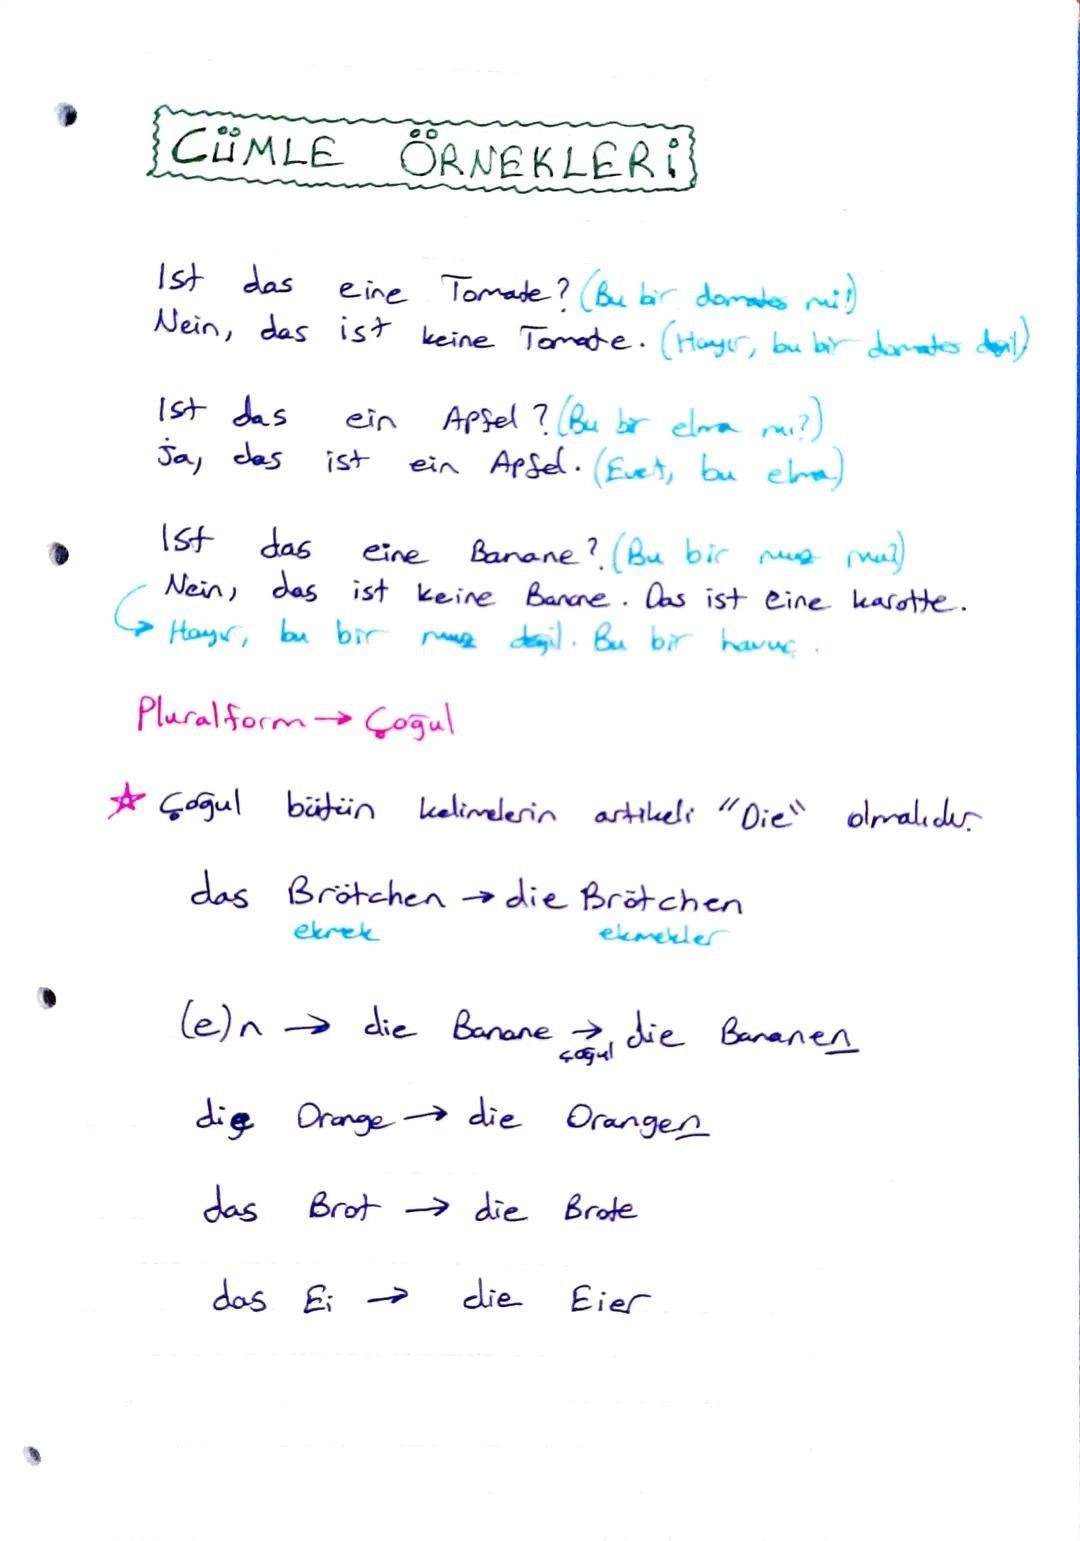 CÜMLE ÖRNEKLERİ
Ist das eine Tomate? (Bu bir domates mi?)
Nein, das ist keine Tomate. (Hayır, bu bir domates değil)
Ist das ein Apfel? (Bu bir elma mı?)
Ja, das ist ein Apfel. (Evet, bu elma.)
Ist das eine Banane? (Bu bir muz mu?)
Nein, das ist keine Banane. Das ist eine karotte.
↳ Hayır, bu bir muz değil. Bu bir havuç.
Pluralform → Çoğul
☆ Çoğul bütün kelimelerin artikeli "Die" olmalıdır.
das Brötchen → die Brötchen
ekmek ekmekler
(e)n → die Banane → die Bananen
çoğul
die Orange → die Orangen
das Brot → die Brote
das Ei → die Eier